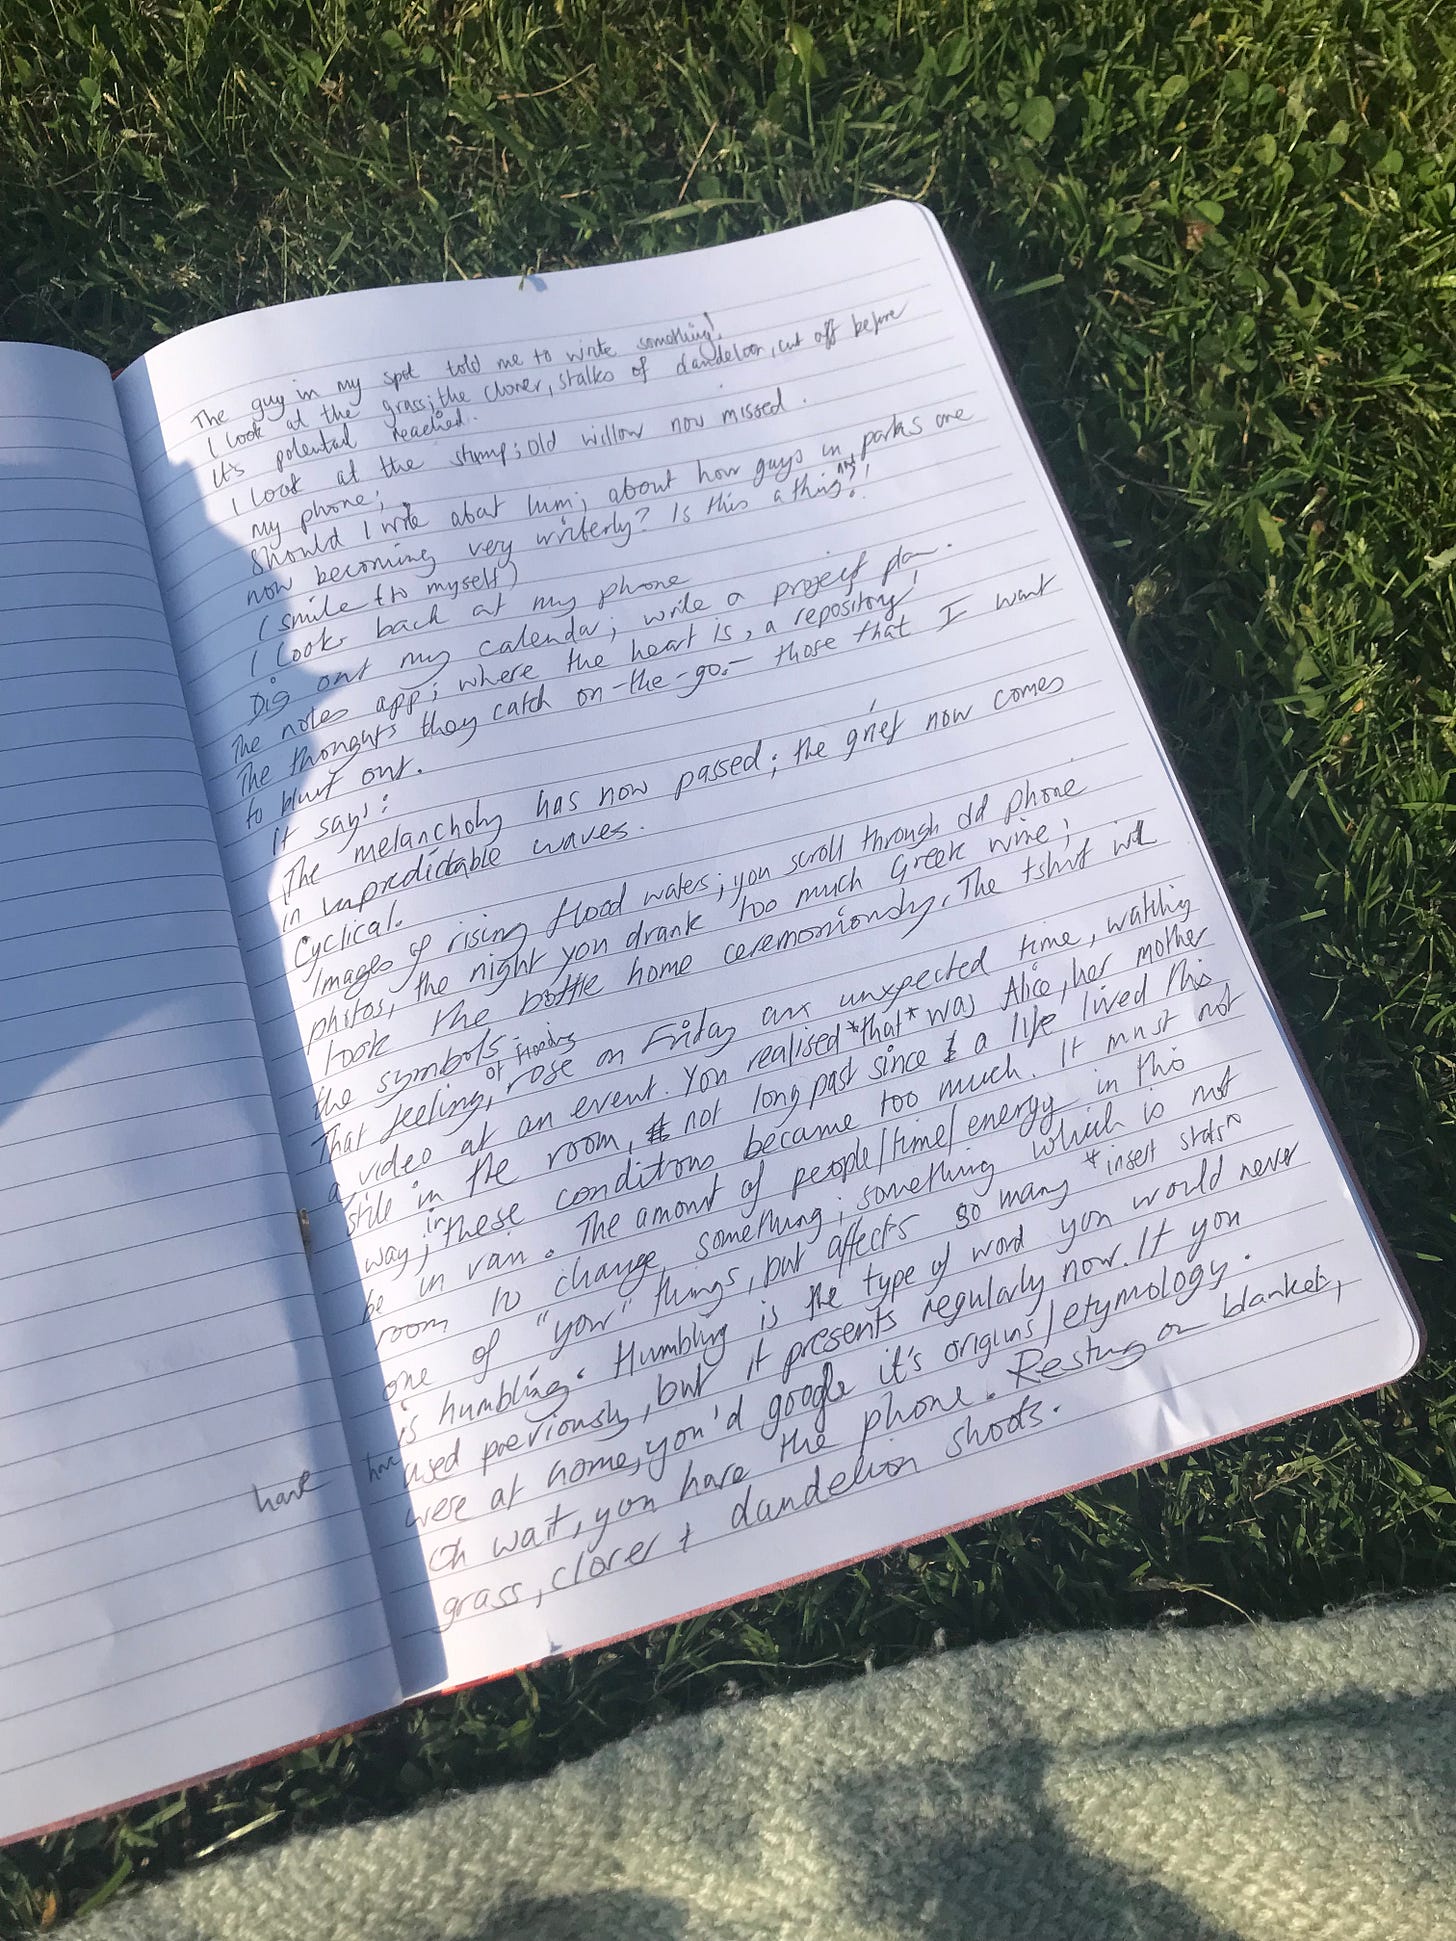 The guy in my spot told me to write something!
I look at the grass; the clover, stalks of dandeloon, cut off before
it's potential reached.
I look at the stump; old willow now missed.
My phone;
Should I write about him; about how guys in parks are
now becoming very writerly? Is this a thing?!
(smile (to myself)
I look back at my phone
Dig out my calendar; write a project plan.
The notes app; where the heart is, a repository!
The thoughts they catch on-the-go - those that I want
to blurt out.
It says:
The melancholy has now passed; the grief now comes
in unpredictable waves.
Cyclical.
Images of rising flood waters; you scroll through old phone
photos, the night you drank too much Greek wine;
took the bottle home ceremoniously. The tshirt with
the symbols.
That feeling, of flooding rose on Friday an unxpected time, watching
a video at an event. You realised *that* was Alice, her mother
still in the room, not long past since a life lived this
way; in these conditions became too much. It must not
be in vain. The amount of people/time/energy in this
room to change something; something which is not
one of "your" things, but affects so many *insert stats*
is humbling. Humbling is the type of word you would never
have have used previously, but it presents regularly now. If you
were at home, you'd google it's origins/etymology.
Oh wait, you have the phone. Resting on blanket,
grass, clover + dandelion shoots.